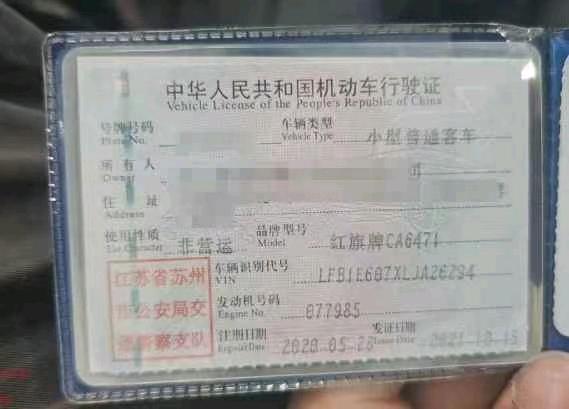 中华人民共和国机动车行驶证
Vehicle License of the People's Republic of China
号牌号码 Plate No. 车辆类型 Vehicle Type 小型普通客车
所有人 Owner
住址 Address
使用性质 Use Character 非营运 品牌型号 Model 红旗牌CA6471
江苏省苏州市公安局交通警察支队
车辆识别代号 VIN
发动机号码 Engine No. 877985
注册日期 Register Date 2020-05-28 发证日期 Issue Date